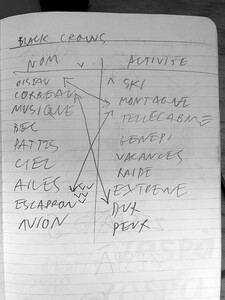 BLACK CROWS
NOM
ACTIVITE
OISEAU
SKI
CORBEAU
MONTAGNE
MUSIQUE
TELECABINE
BEC
GENEPI
PATTES
VACANCES
CIEL
RAIDE
AILES
EXTREME
ESCADRON
DUX
AVION
PEUX